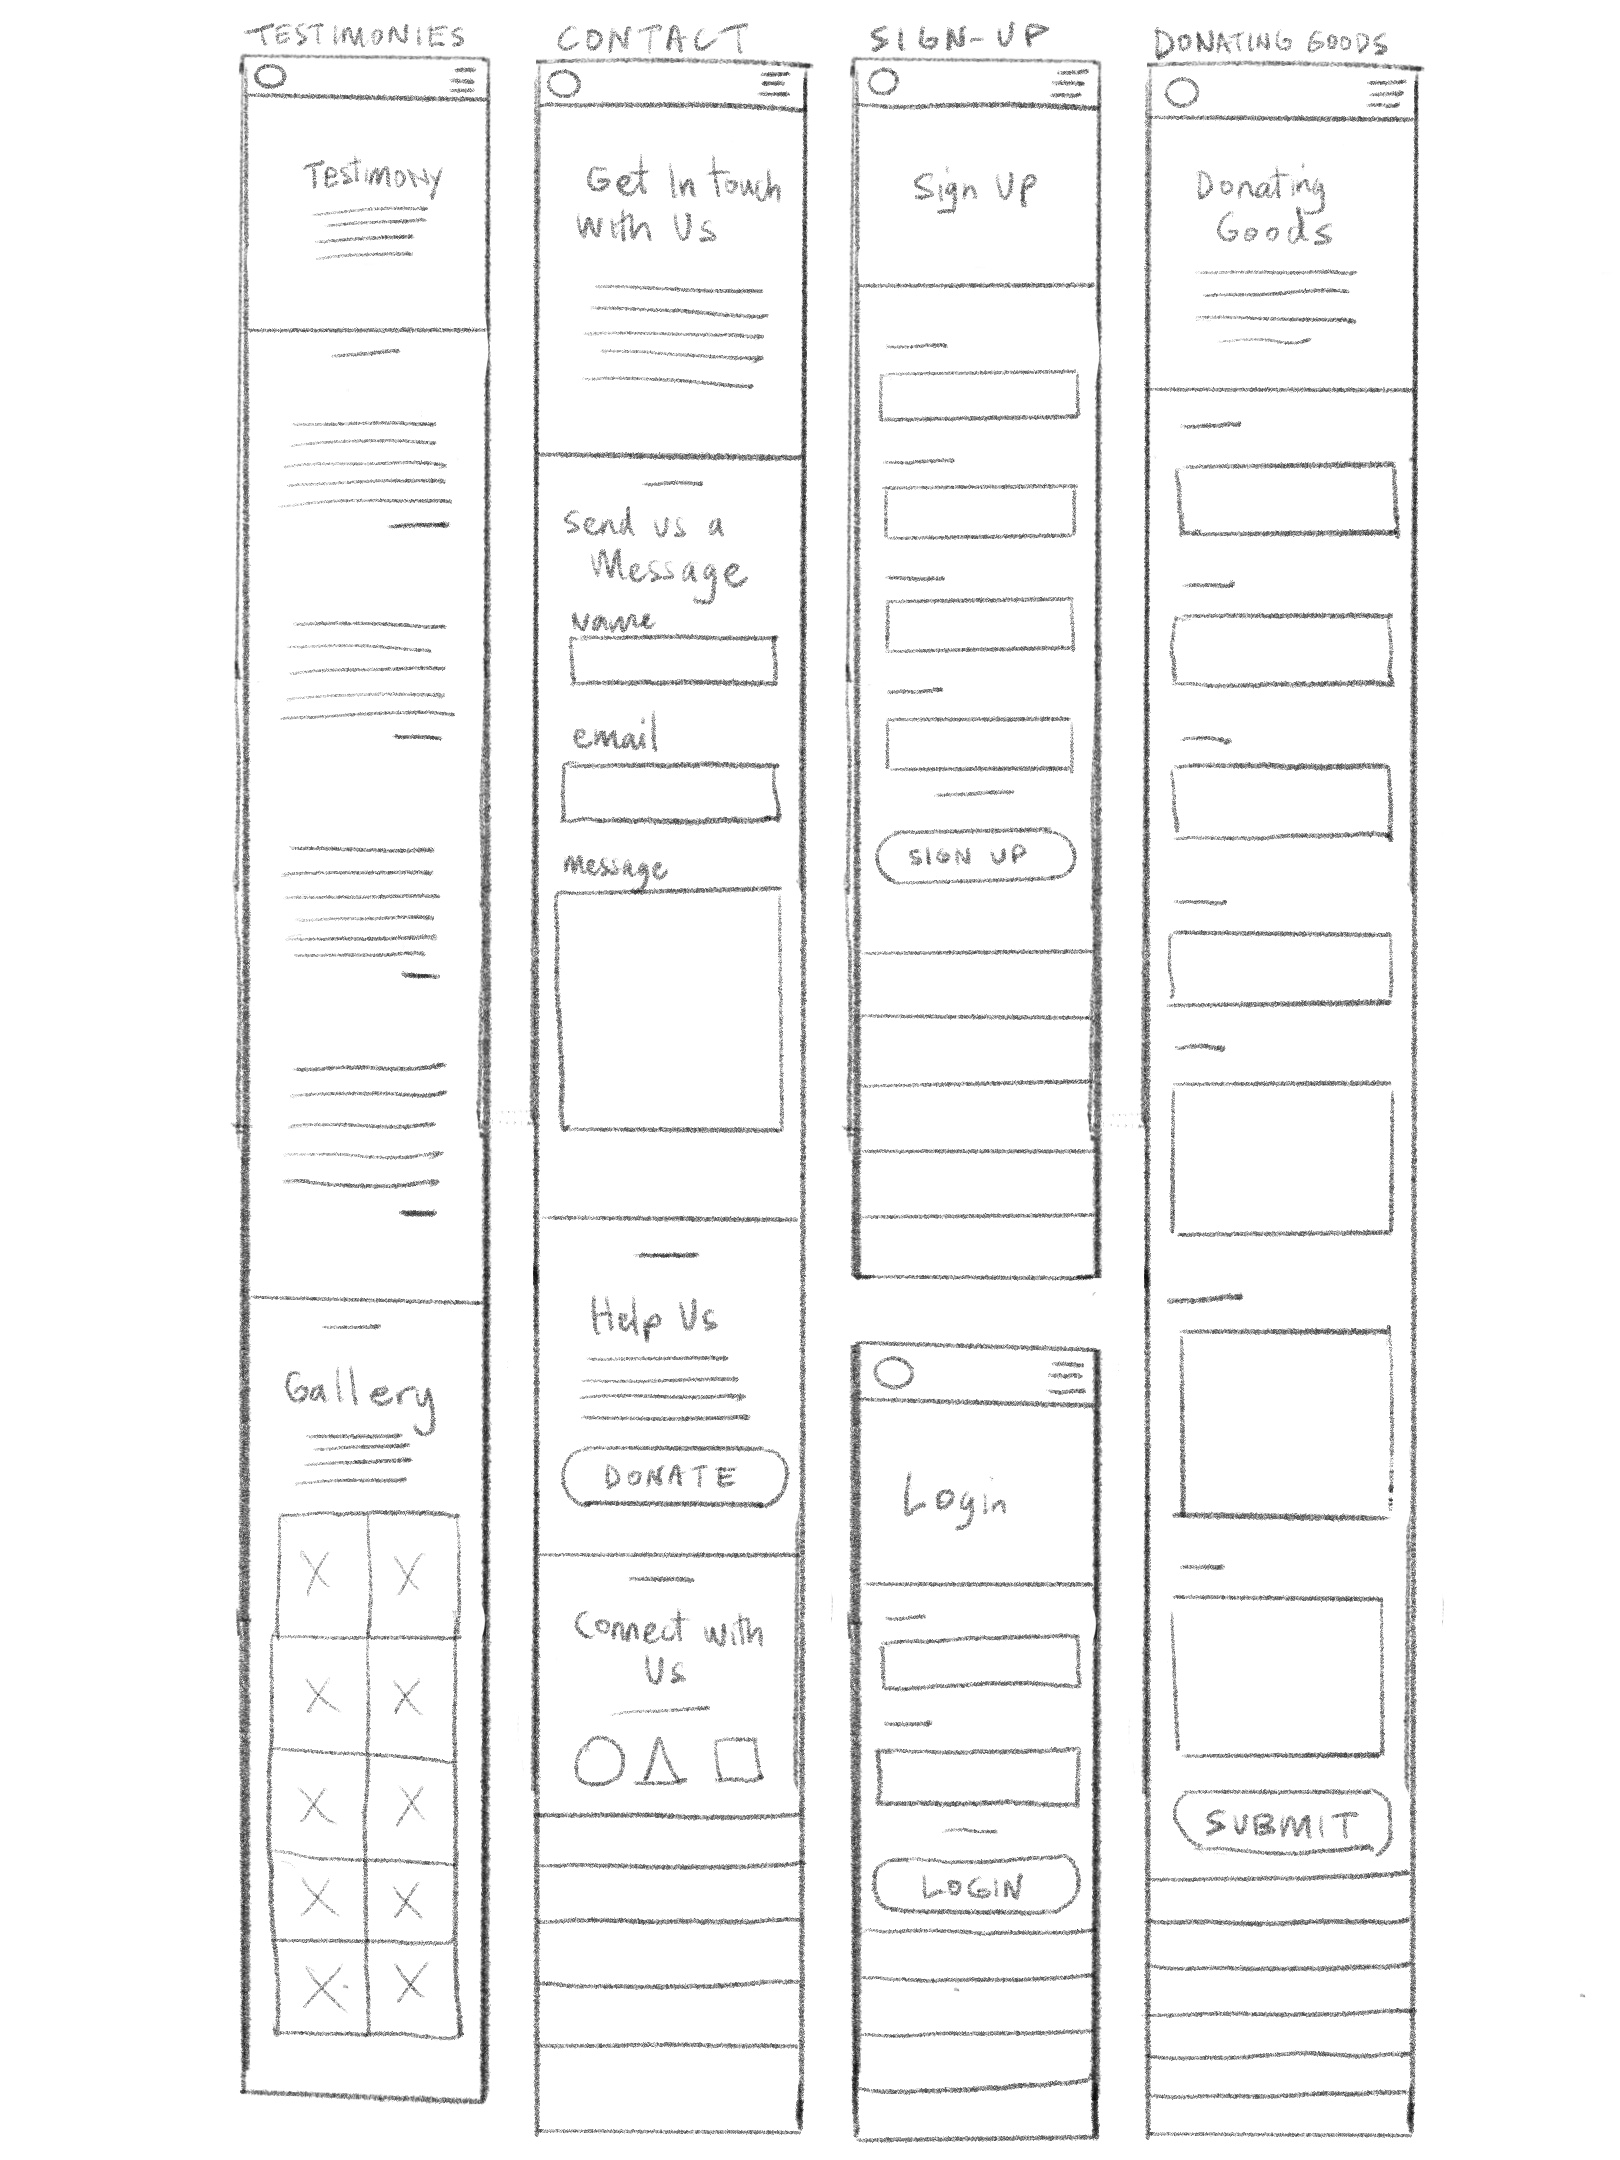 TESTIMONIES
Testimony
Gallery
CONTACT
Get In touch
With Us
Send us a
Message
Name
email
Message
Help Us
DONATE
Connect with
Us
SIGN-UP
Sign UP
SIGN UP
Login
LOGIN
DONATING GOODS
Donating
Goods
SUBMIT